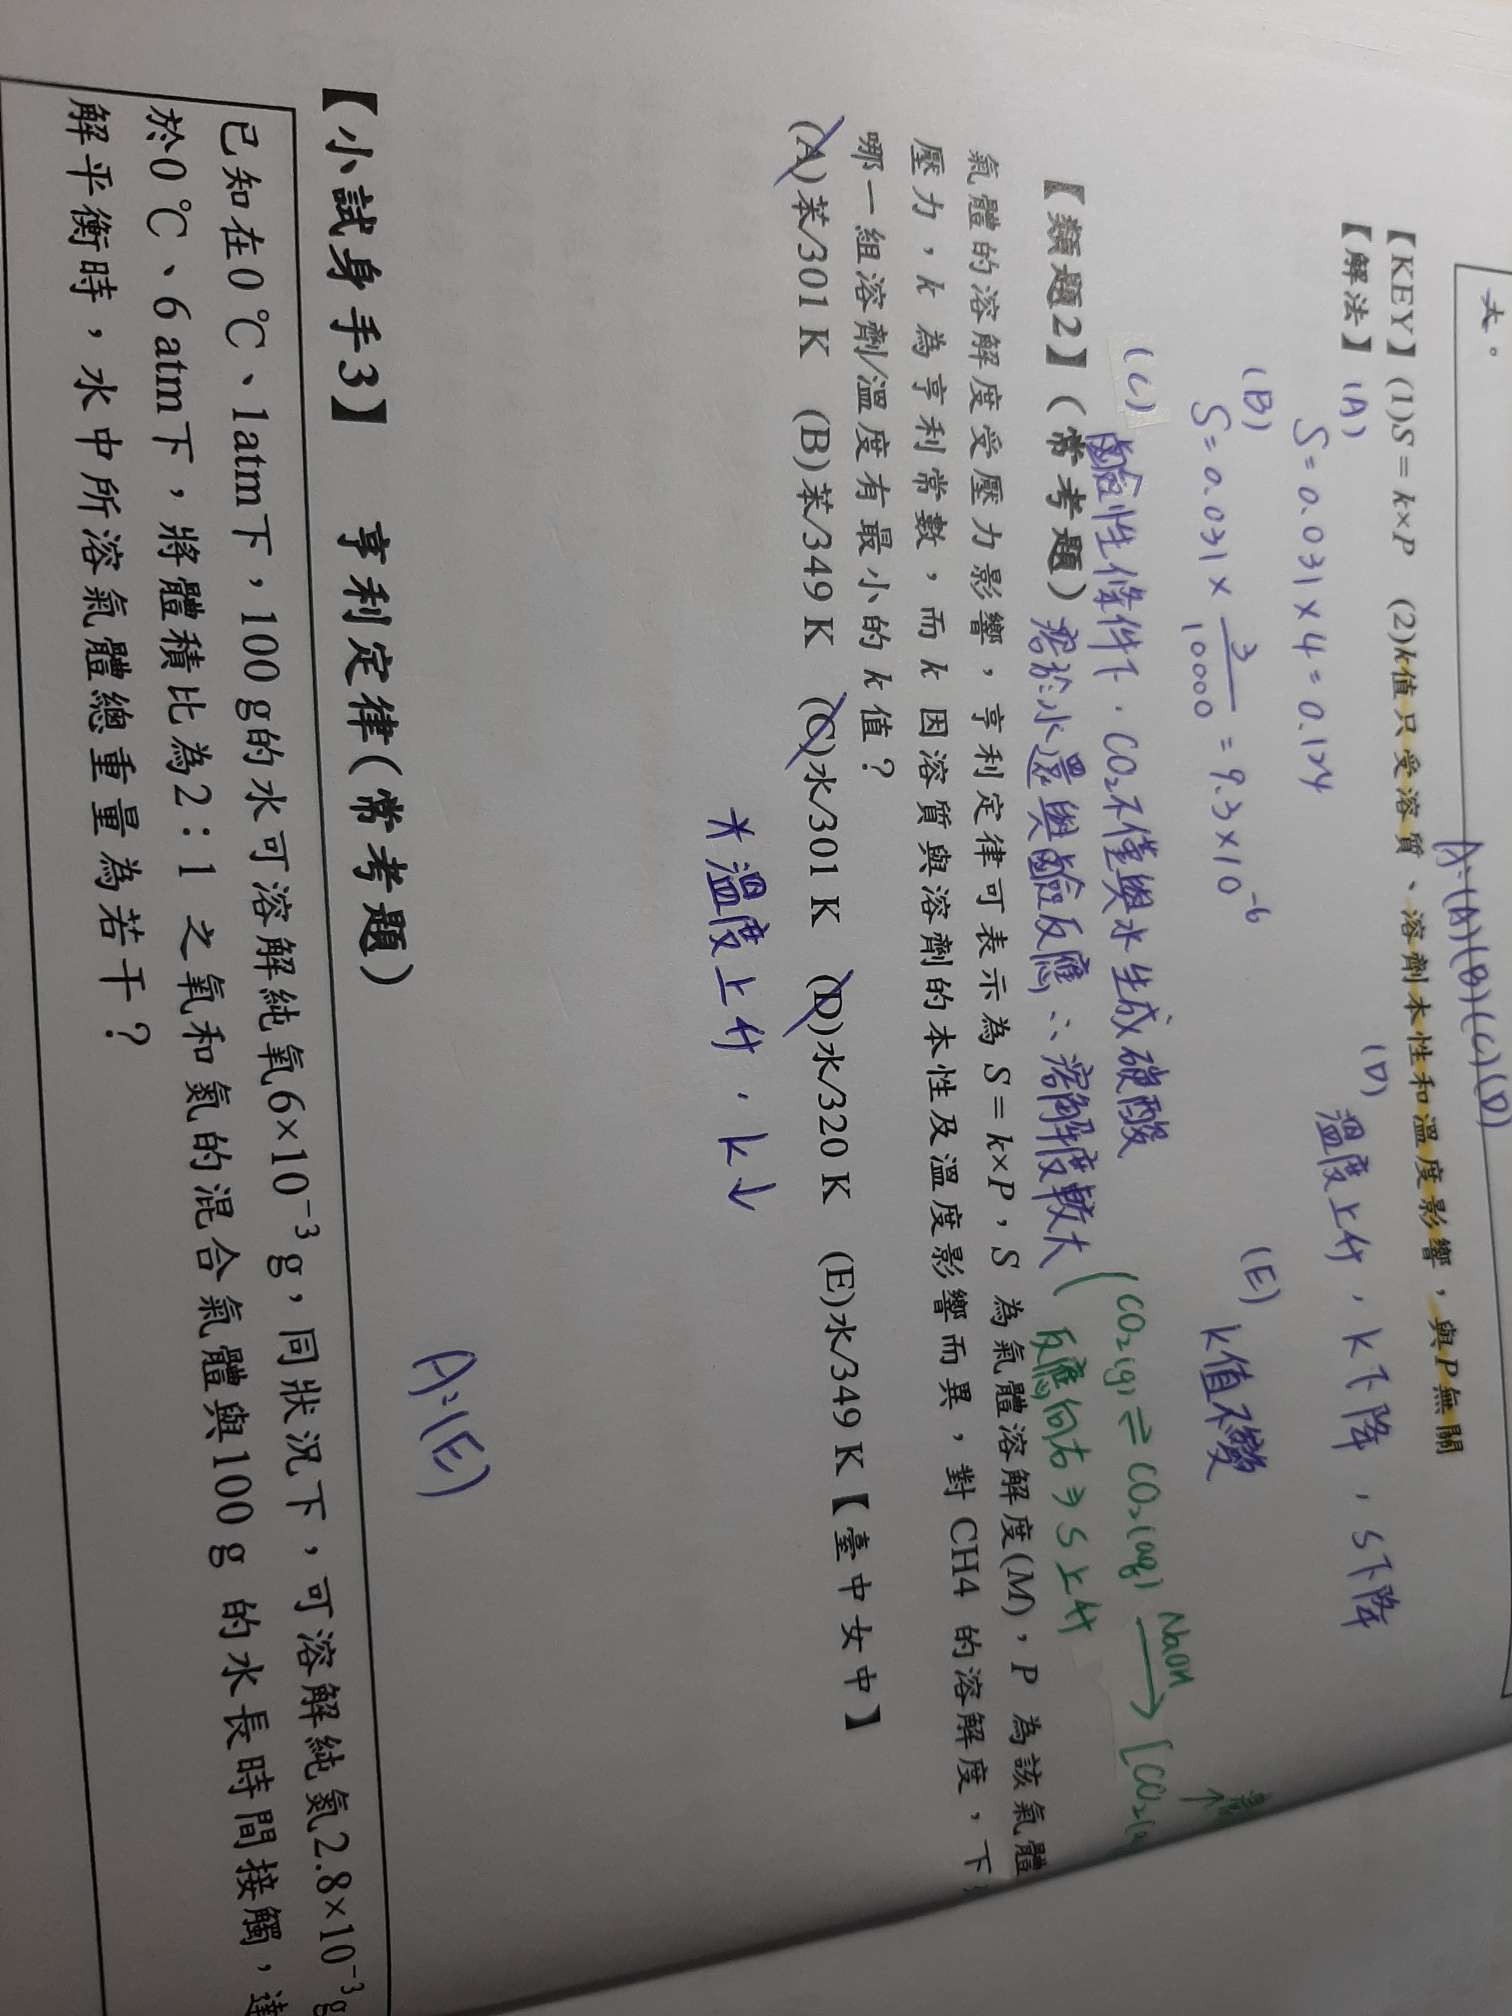 大。
A:(A)(B)(C)(D)
【KEY】(1)S=k×P (2)k值只受溶質、溶劑本性和溫度影響,與P無關
【解法】(A)
S=0.031×4=0.124
(D)
溫度上升,k下降,S下降
(B)
S=0.031×3/10000=9.3×10⁻⁶
(E)
k值不變
(C)
鹼性條件下,CO₂不僅與水生成碳酸
溶於水還與鹼反應∴溶解度較大
(CO₂(g)⇌CO₂(aq) NaOH→[CO₂(a
反應向右⇒S上升
【類題2】(常考題)
氣體的溶解度受壓力影響,亨利定律可表示為S=k×P,S 為氣體溶解度(M),P 為該氣體
壓力,k 為亨利常數,而 k 因溶質與溶劑的本性及溫度影響而異,對 CH4 的溶解度,下
哪一組溶劑/溫度有最小的 k 值?
(A)苯/301 K (B)苯/349 K (C)水/301 K (D)水/320 K (E)水/349 K【臺中女中】
*溫度上升,k↓
A:(E)
【小試身手3】 亨利定律(常考題)
已知在0℃、1atm下,100 g的水可溶解純氧6×10⁻³ g,同狀況下,可溶解純氮2.8×10⁻³ g
於0℃、6 atm下,將體積比為2:1 之氧和氮的混合氣體與100 g 的水長時間接觸,達
解平衡時,水中所溶氣體總重量為若干?